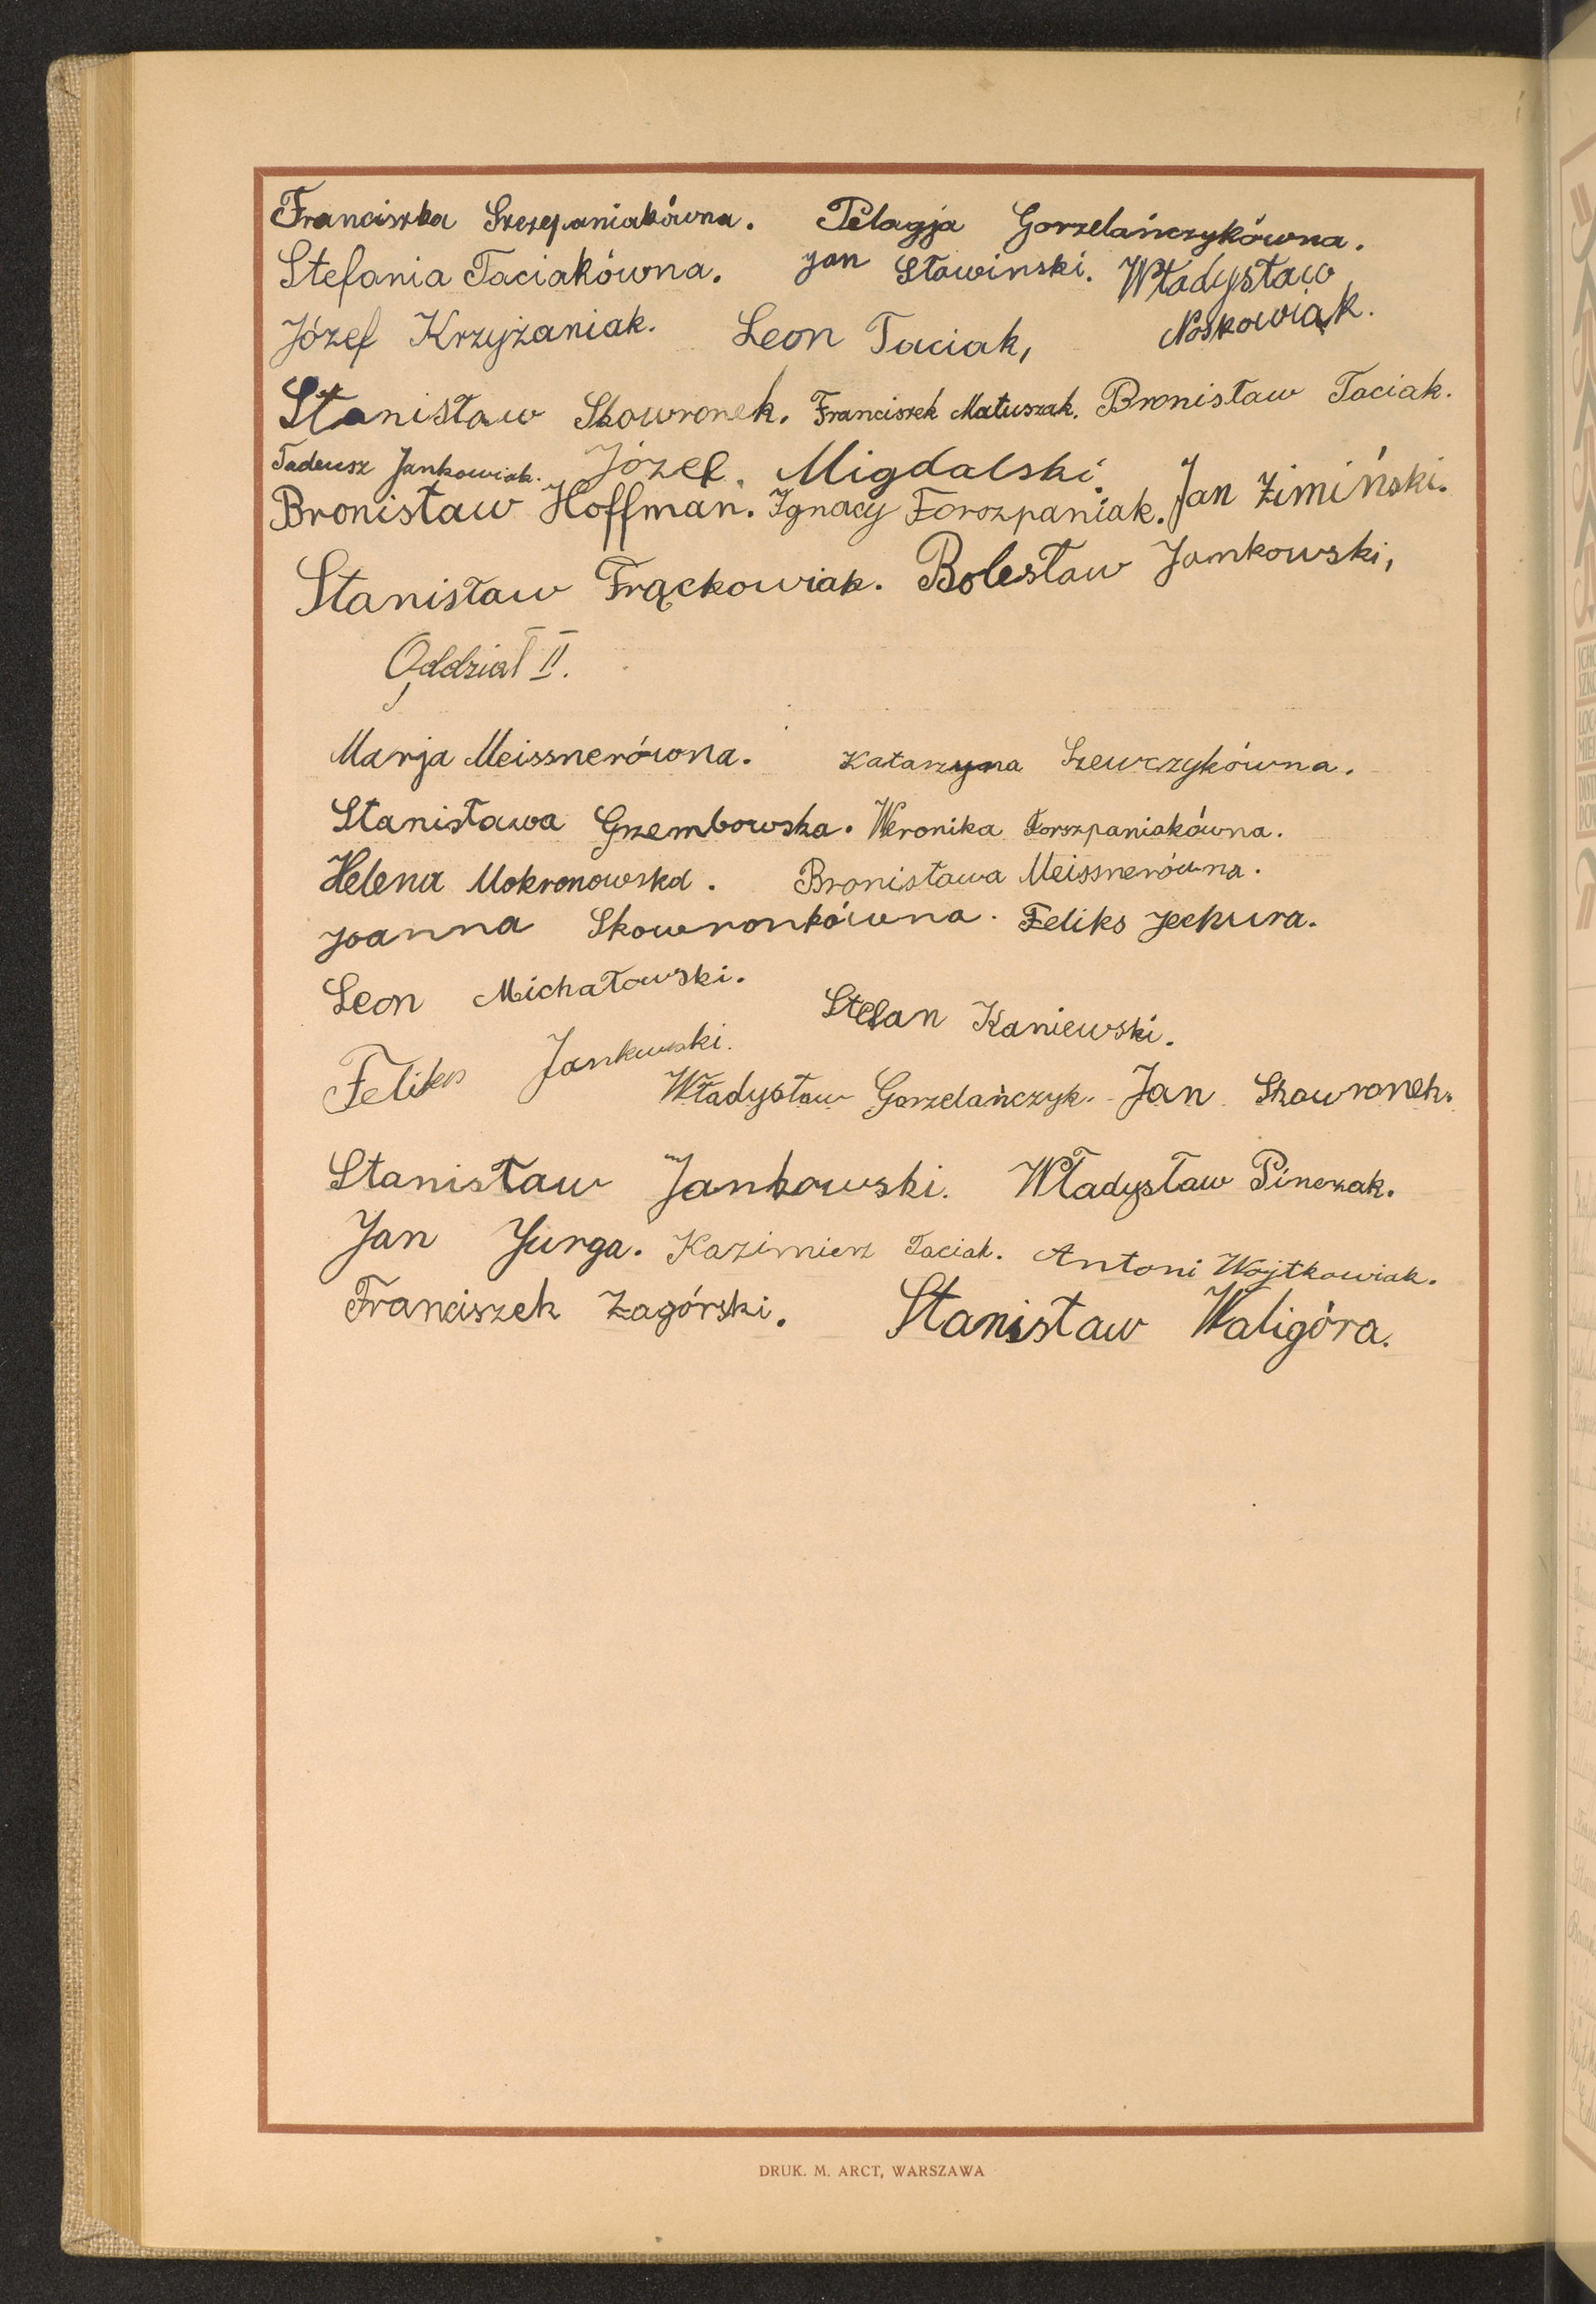 Franciszka Szczepaniakówna. Pelagja Gorzelańczykówna.
Stefania Taciakówna. Jan Sławinski. Władysław
Józef Krzyżaniak. Leon Taciak, Noskowiak.
Stanisław Skowronek. Franciszek Matuszak. Bronisław Taciak.
Tadeusz Jankowiak. Józef Migdalski.
Bronisław Hoffman. Ignacy Forszpaniak. Jan Zimiński.
Stanisław Frąckowiak. Bolesław Jankowski,
Oddział II.
Marja Meissnerówna. Katarzyna Szewczykówna.
Stanisława Grzembowska. Weronika Forszpaniakówna.
Helena Mokronowska. Bronisława Meissnerówna.
Joanna Skowronkówna. Feliks
Leon Michałowski. Stefan Kaniewski.
Feliks Jankowski.
Władysław Gorzelańczyk. Jan Skowronek.
Stanisław Jankowski. Władysław Pinczak.
Jan Jurga. Kazimierz Taciak. Antoni Wojtkowiak.
Franciszek Zagórski. Stanisław Waligóra.
DRUK. M. ARCT, WARSZAWA